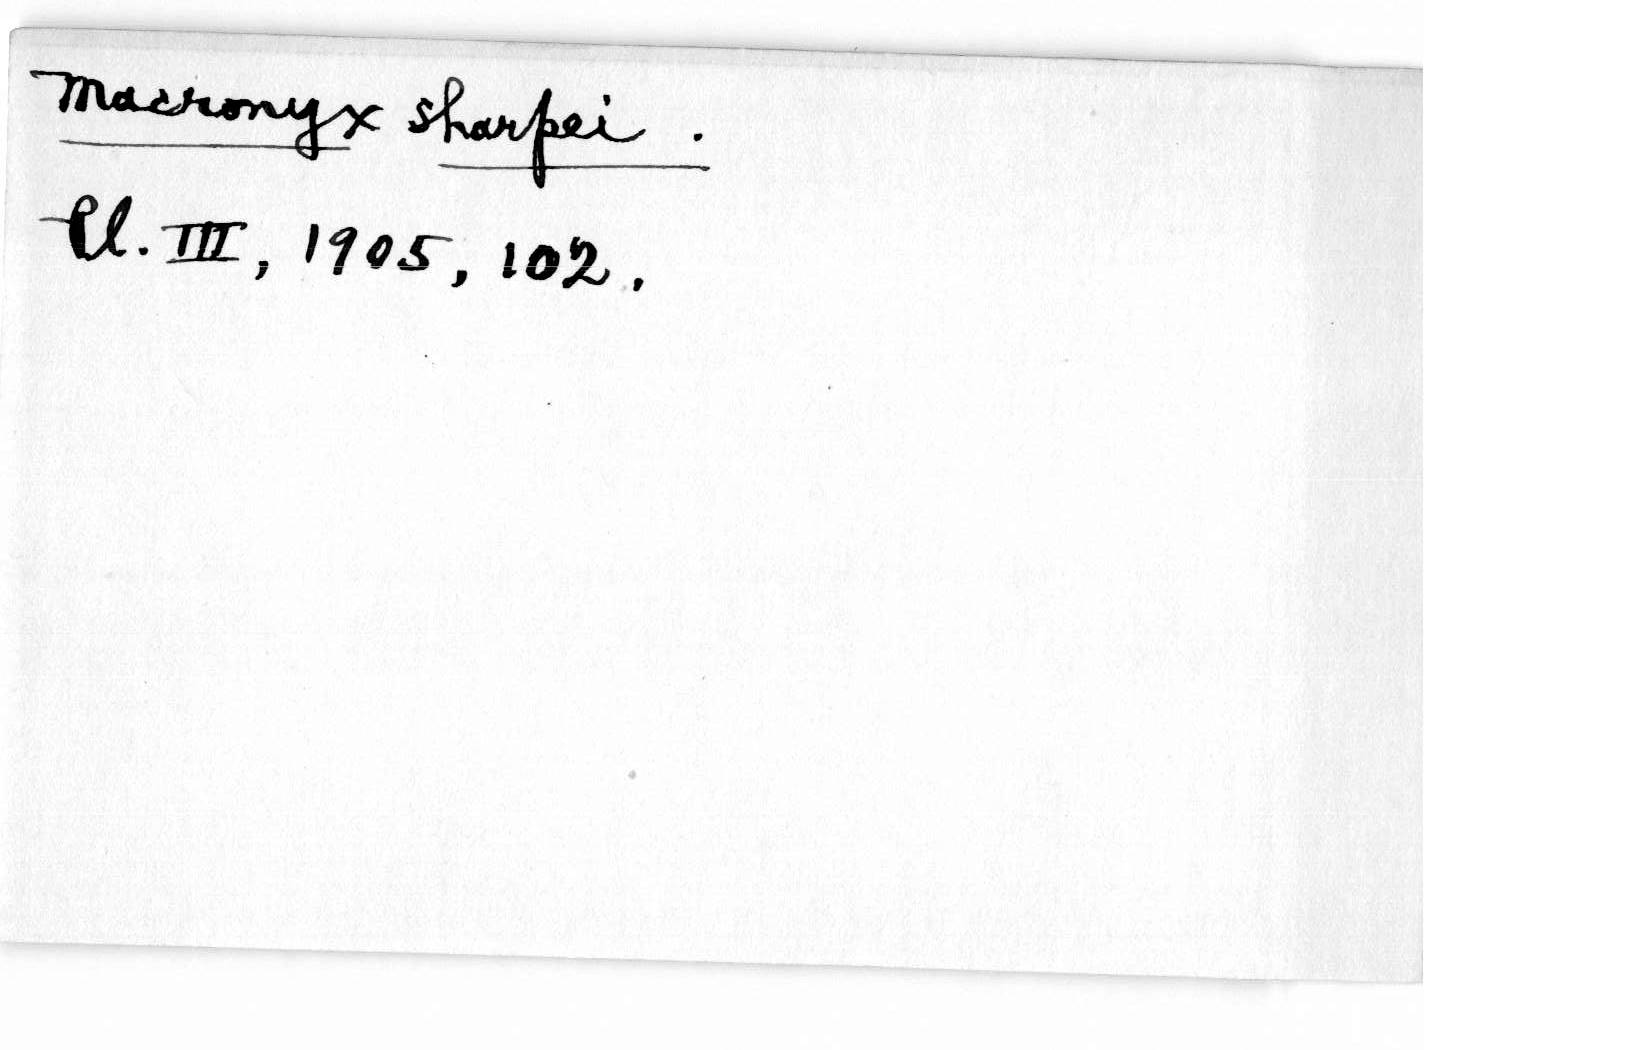 Macronyx sharpei.
Pl. III, 1905, 102.